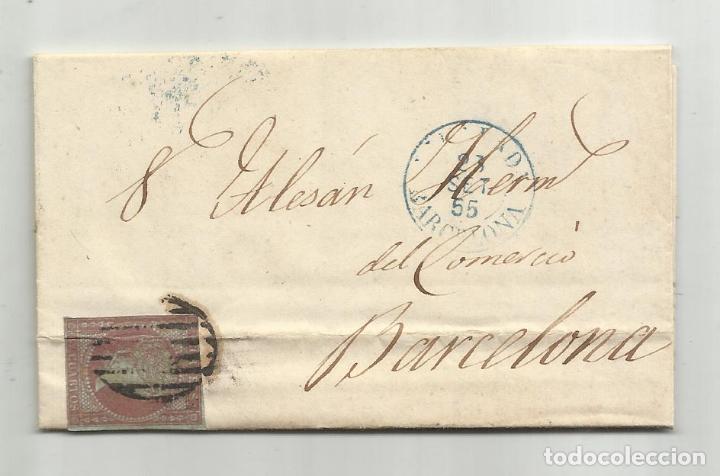 Sres Alesán Herm
del Comercio
Barcelona
23
SET
55
BARCELONA
CUARTOS
todocoleccion